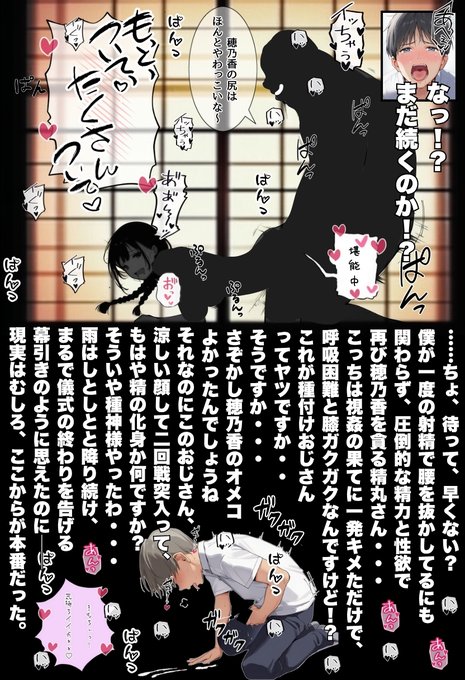 なっ！？
まだ続くのか！？
イッちゃう♡
穂乃香の尻は
ほんとやわっこいな～
もっと
ついて
たくさん
ついて♡
ぱんっ
ぱんっ
ぱんっ
ぱんっ
イッちゃう
おおっ
お♡
ぷるんっ
ぷるんっ
堪能中
ぱんっ
……ちょ、待って、早くない？
僕が一度の射精で腰を抜かしてるにも
関わらず、圧倒的な精力と性欲で
再び穂乃香を貪る精丸さん・・・
こっちは視姦の果てに一発キメただけで、
呼吸困難と膝ガクガクなんですけど！？
これが種付けおじさん
ってヤツですか・・・
そうですか・・・
さぞかし穂乃香のオメコ
よかったんでしょうね
それなのにこのおじさん、
涼しい顔して二回戦突入って、
もはや精の化身か何ですか？
そういや種神様やったわ・・・
雨はしとしとと降り続け、
まるで儀式の終わりを告げる
幕引きのように思えたのに――
現実はむしろ、ここからが本番だった。
ガクガク
ガクガク
あんっ
あんっ
あんっ
ぱんっ
ぱんっ
ぱんっ